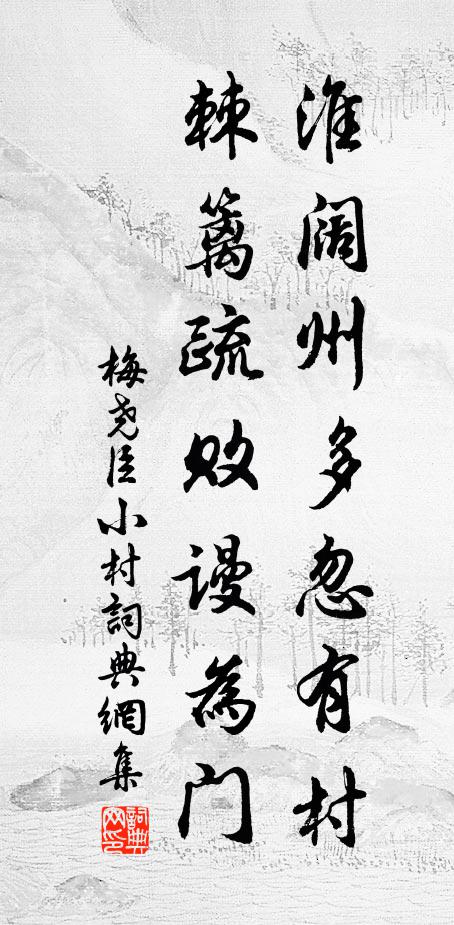 淮阔州多忽有村
棘篱疏败谩為门
梅尧臣小村詞典網集
詞典网印